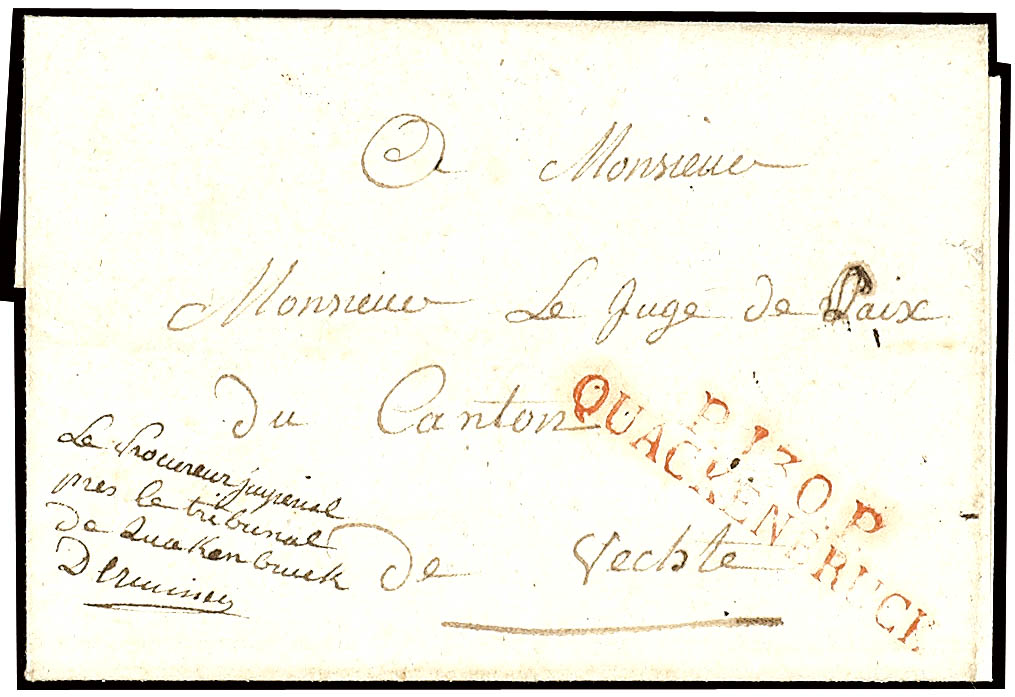 A Monsieur
Monsieur Le Juge de Paix
du Canton
de Vechte
P.130.P
QUACKENBRUCK
Le Procureur jmperial
pres le tribunal
de Quakenbruck